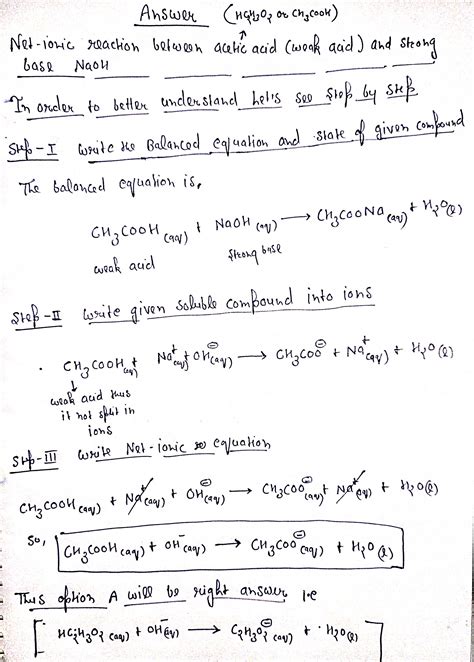 Answer (HC2H3O2 or CH3COOH)
Net-ionic reaction between acetic acid (weak acid) and strong
base NaOH
In order to better understand Let's see Step by Step
Step-I Write the Balanced equation and state of given compound
The balanced equation is,
CH3COOH (aq) + NaOH (aq) → CH3COONa (aq) + H2O(l)
weak acid strong base
Step-II Write given soluble compound into ions
CH3COOH(aq) + Na+(aq) + OH⊖(aq) → CH3COO⊖ + Na+(aq) + H2O(l)
↓
weak acid thus
it not split in
ions
Step-III Write Net-ionic equation
CH3COOH(aq) + Na+(aq) + OH⊖(aq) → CH3COO⊖(aq) + Na+(aq) + H2O(l)
So, CH3COOH(aq) + OH-(aq) → CH3COO⊖(aq) + H2O(l)
Thus option A will be right answer i.e
[ HC2H3O2 (aq) + OH⊖(aq) → C2H3O2⊖(aq) + H2O(l) ]